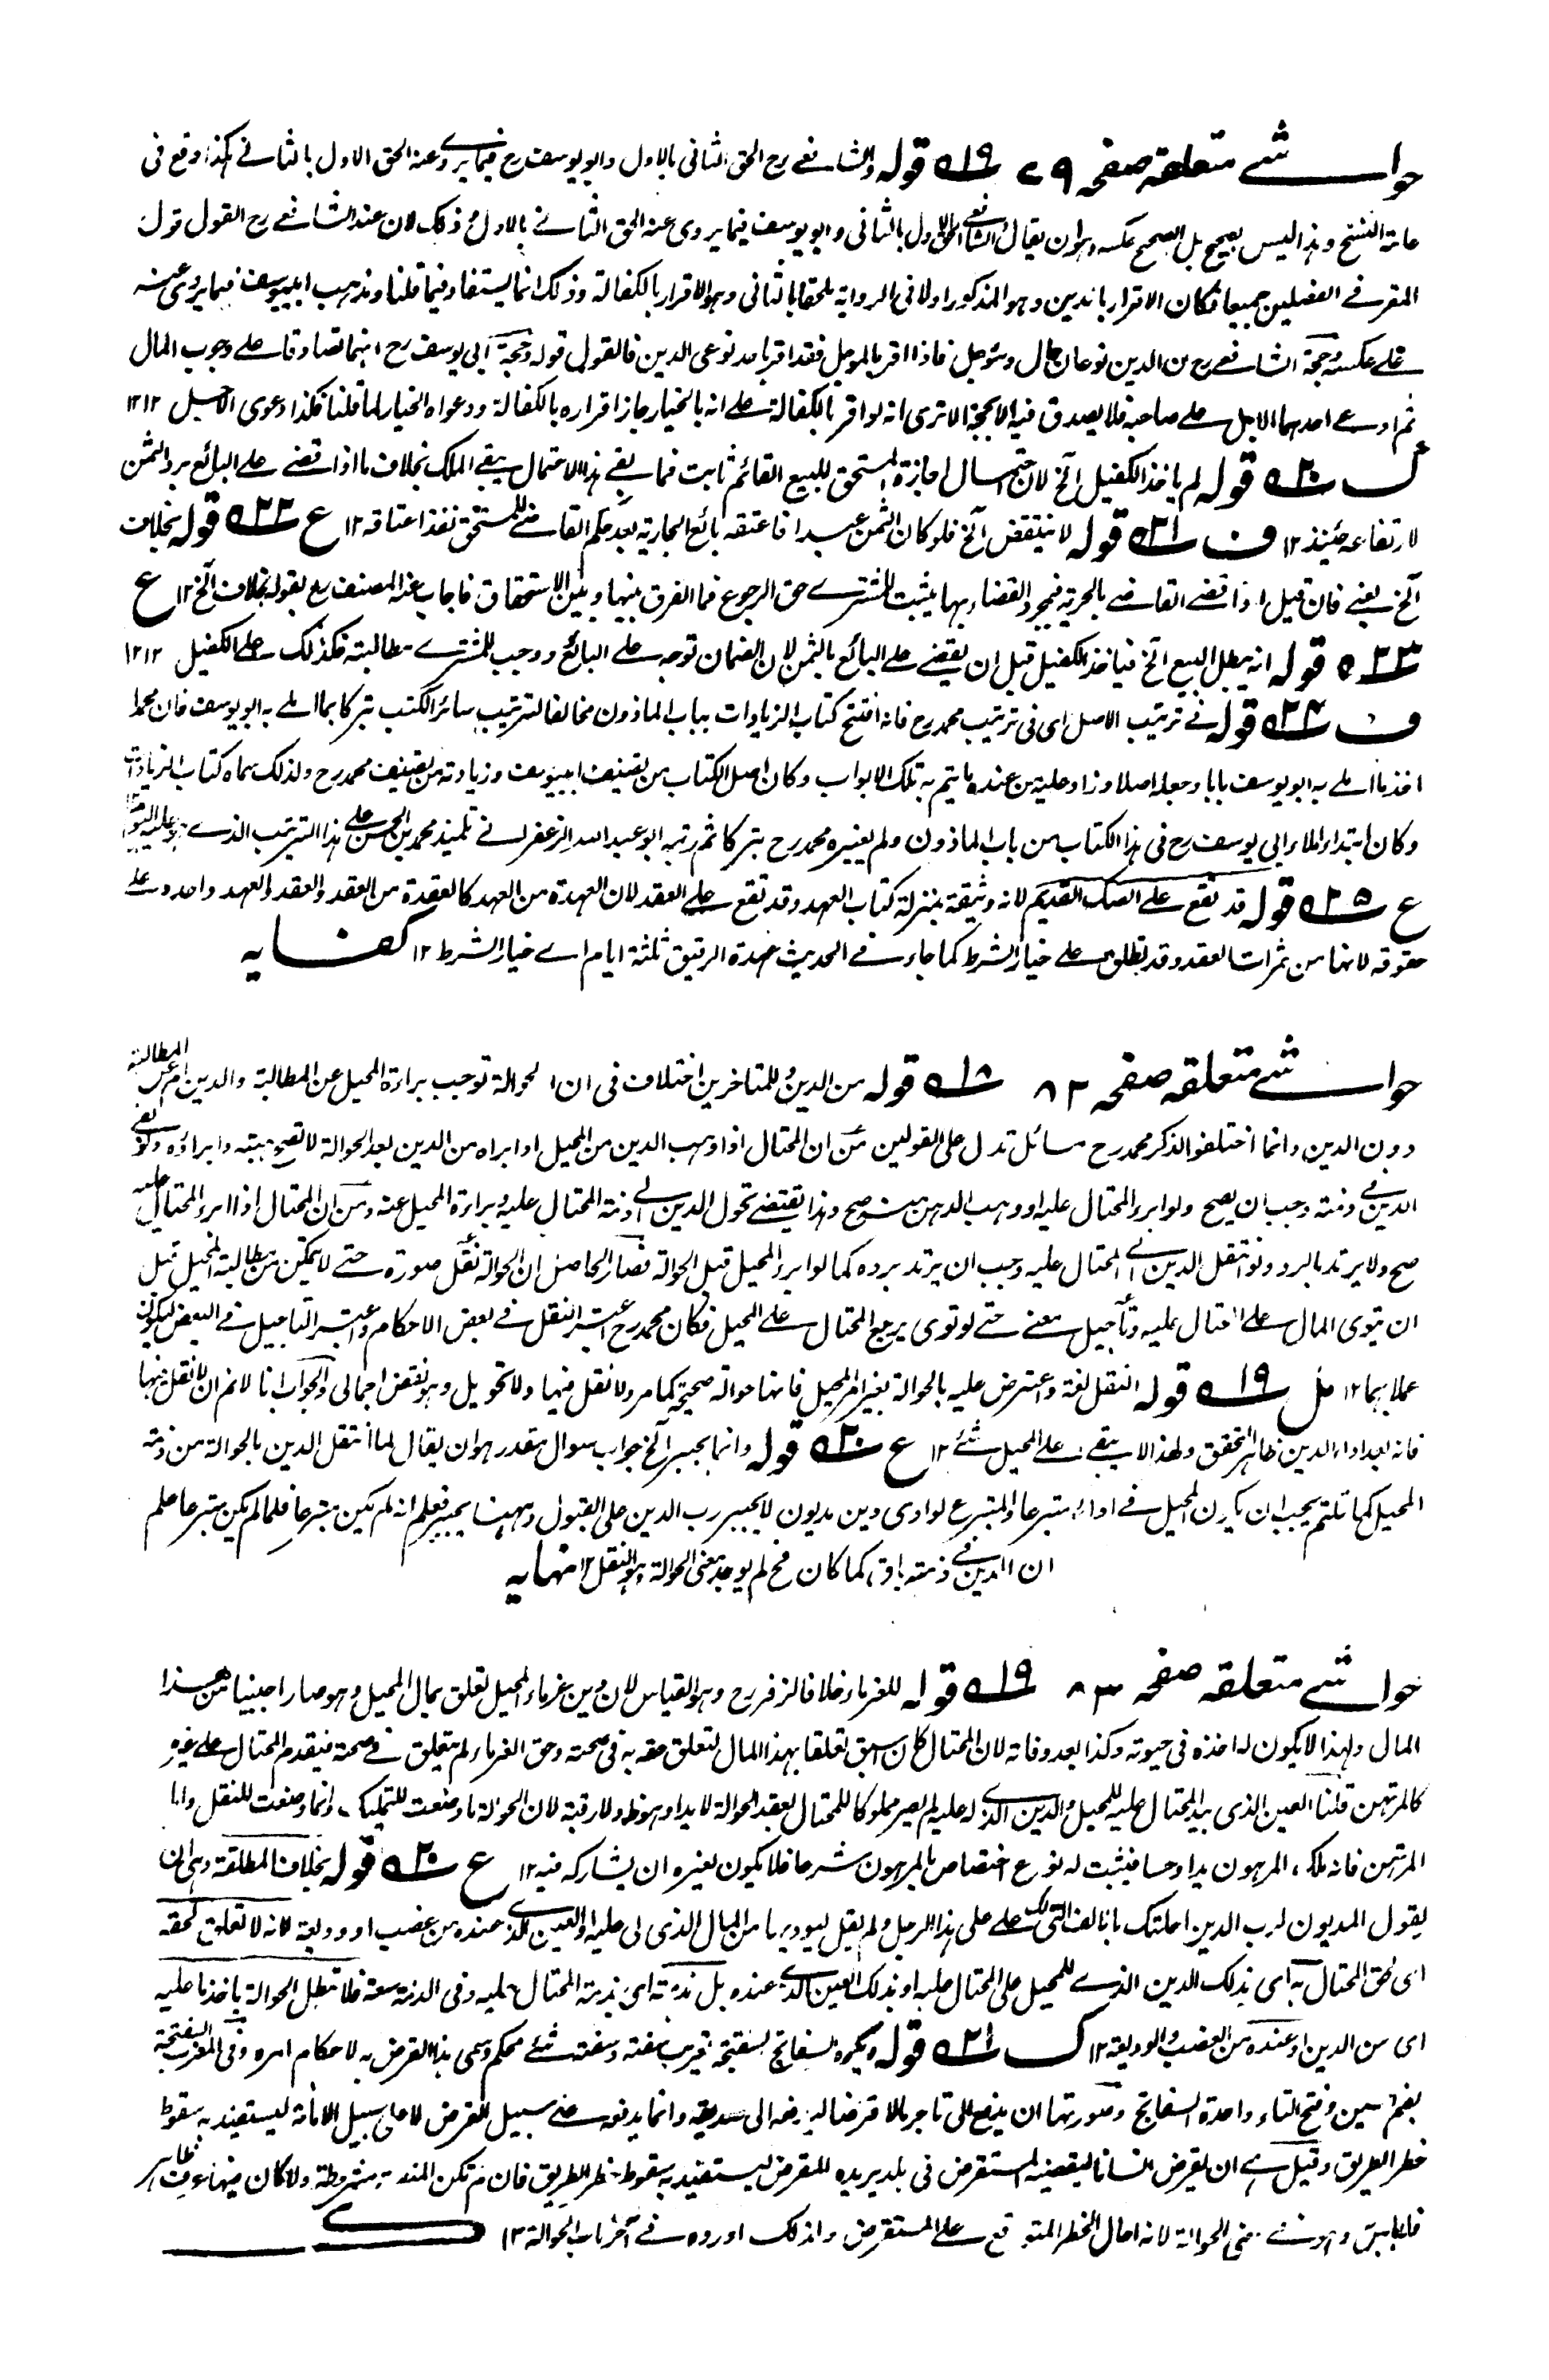 حواشے متعلقہ صفحہ ۷۹ ۱۹ ؎ قولہ والشافعے رح الحق الثانی بالاول وابو یوسف رح فیما یروے عنہ الحق الاول بالثانے ہکذا وقع فی
عامۃ النسخ وہذا لیس بصحیح بل الصحیح عکسہ وہو ان یقال الشافعے الحق الاول بالثانی وابو یوسف فیما یروی عنہ الحق الثانے بالاول وذلک لان عند الشافعے رح القول قول
المقر فے الفصلین جمیعا فکان الاقرار بالدین وہو المذکور اولا فی الروایۃ ملحقا بالثانی وہو الاقرار بالکفالۃ وذلک انما یستفاد فیما قلنا ومذہب ابیوسف فیما یروی عنہ
علے عکسہ وحجۃ الشافعے رح ان الدین نوعان حال ومؤجل فاذا اقر بالمؤجل فقد اقر باحد نوعی الدین فالقول قولہ وحجۃ ابی یوسف رح انہما تصادقا علے وجوب المال
ثم ادعے احدہما الاجل علے صاحبہ فلا یصدق فیہ الا بحجۃ الا تری انہ لو اقر بالکفالۃ علے انہ بالخیار جاز اقرارہ بالکفالۃ ودعواہ الخیار لما قلنا فکذا دعوی الاجل ۱۲۱۲
ک ۲۰ ؎ قولہ لم یاخذ الکفیل الخ لان احتمال اجازۃ المستحق للبیع القائم ثابت فما بقے ہذا الاحتمال یبقے الملک بخلاف ما اذا قضے علے البائع برد الثمن
لارتفاعہ حینئذ ۱۲ ف ۲۱ ؎ قولہ لا ینتقض الخ فلو کان الثمن عبدا فاعتقہ بائع الجاریۃ بعد حکم القاضے للمستحق نفذ اعتاقہ ۱۲ ع ۲۲ ؎ قولہ بخلاف
الخ یعنے فان قیل اذا قضے القاضے بالحریۃ فبمجرد القضاء بہا یثبت للمشترے حق الرجوع فما الفرق بینہا وبین الاستحقاق فاجاب عنہ المصنف رح بقولہ بخلاف الخ ۱۲ ع
۲۳ ؎ قولہ انہ یبطل البیع الخ فیاخذ الکفیل قبل ان یقضے علے البائع بالثمن لان الضمان توجہ علے البائع ووجب للمشترے مطالبتہ فکذلک علے الکفیل ۱۲۱۲
ف ۲۴ ؎ قولہ فے ترتیب الاصل ای فی ترتیب محمد رح فانہ افتتح کتاب الزیادات بباب الماذون مخالفا لترتیب سائر الکتب تبرکا بما املے بہ ابو یوسف فان محمدا
اخذ ما املے بہ ابو یوسف بابا وجعلہ اصلا وزاد علیہ من عندہ ما یتم بہ تلک الابواب وکان اصل الکتاب من تصنیف ابیوسف وزیادتہ من تصنیف محمد رح ولذلک سماہ کتاب الزیادات
وکان ابتداء املاء ابی یوسف رح فی ہذا الکتاب من باب الماذون ولم یغیرہ محمد رح تبرکا ثم رتبہ ابو عبد اللہ الزعفرانے تلمیذ محمد بن الحسن علے ہذا الترتیب الذے ہو علیہ الیوم
ع ۲۵ ؎ قولہ قد تقع علے الصک القدیم لانہ وثیقۃ بمنزلۃ کتاب العہد وقد تقع علے العقد لان العہدۃ من العہد کالعقدۃ من العقد والعقد والعہد واحد وعلے
حقوقہ لانہا من ثمرات العقد وقد تطلق علے خیار الشرط کما جاء فے الحدیث عہدۃ الرقیق ثلثۃ ایام اے خیار الشرط ۱۲ کفایہ
حواشے متعلقہ صفحہ ۸۲ ۱۸ ؎ قولہ من الدین وللمتاخرین اختلاف فی ان الحوالۃ توجب براءۃ المحیل عن المطالبۃ والدین ام عن المطالبۃ
دون الدین وانما اختلفوا لذکر محمد رح مسائل تدل علی القولین منہا ان المحتال اذا وہب الدین من المحیل او ابراہ من الدین بعد الحوالۃ لا تصح ہبتہ وابراؤہ ولو بقے
الدین فے ذمتہ وجب ان یصح ولو ابرء المحتال علیہ او وہب الدین منہ صح وہذا یقتضے تحول الدین الے ذمۃ المحتال علیہ وبراءۃ المحیل عنہ ومنہا ان المحتال اذا ابرء المحتال علیہ
صح ولا یرتد بالرد ولو انتقل الدین الے المحتال علیہ وجب ان یرتد بردہ کما لو ابرء المحیل قبل الحوالۃ فصار الحاصل ان الحوالۃ نقل صورۃ حتے لا یمکن من مطالبۃ المحیل قبل
ان یتوی المال علے المحتال علیہ وتاجیل معنے حتے لو توی یرجع المحتال علے المحیل فکان محمد رح اعتبر النقل فے بعض الاحکام واعتبر التاجیل فے البعض لیکون
عملا بہما ۱۲ مل ۱۹ ؎ قولہ النقل لغۃ واعترض علیہ بالحوالۃ بغیر امر المحیل فانہا حوالۃ صحیحۃ کما مر ولا نقل فیہا ولا تحویل وہو نقض اجمالی والجواب انا لا نم ان لا نقل فیہا
فانہ بعد اداء الدین ظاہر التحقق ولہذا لا یبقے علے المحیل شئے ۱۲ ع ۲۰ ؎ قولہ وانما یجبر الخ جواب سوال مقدر ہو ان یقال لما انتقل الدین بالحوالۃ من ذمۃ
المحیل کما قلتم یجب ان یکون المحیل فے اداء متبرعا والمتبرع لو ادی دین مدیون لا یجبر رب الدین علی القبول وہہنا یجبر فعلم انہ لم یکن متبرعا فلما لم یکن متبرعا علم
ان الدین فے ذمتہ باق کما کان فح لم یوجد معنی الحوالۃ وہو النقل ۱۲ نہایہ
حواشے متعلقہ صفحہ ۸۳ ۱۹ ؎ قولہ للغرماء خلافا لزفر رح وہو القیاس لان دین غرماء المحیل تعلق بمال المحیل وہو صار اجنبیا من ہذا
المال ولہذا لا یکون لہ اخذہ فی حیوتہ وکذا بعد وفاتہ لان المحتال کان اسبق تعلقا بہذا المال لتعلق حقہ بہ فی صحتہ وحق الغرماء لم یتعلق فے صحتہ فیقدم المحتال علے غیرہ
کالمرتہن قلنا العین الذی بید المحتال علیہ للمحیل والدین الذے لہ علیہ لم یصر مملوکا للمحتال بعقد الحوالۃ لا یدا وہو ظ ولا رقبۃ لان الحوالۃ ما وضعت للتملیک وانما وضعت للنقل واما
المرتہن فانہ ملک المرہون یدا وحسا فیثبت لہ نوع اختصاص بالمرہون شرعا فلا یکون لغیرہ ان یشارکہ فیہ ۱۲ ع ۲۰ ؎ قولہ بخلاف المطلقۃ وہی ان
یقول المدیون لرب الدین احلتک بالالف التی لک علے علی ہذا الرجل ولم یقل لیودیہا من المال الذی لی علیہ او العین الذے عندہ من غصب او ودیعۃ لانہ لا تعلق لحقہ
ای لحق المحتال بہ ای بذلک الدین الذے للمحیل علی المحتال علیہ او بذلک العین الذے عندہ بل بذمتہ ای بذمۃ المحتال علیہ وفی الذمۃ سعۃ فلا تبطل الحوالۃ باخذ ما علیہ
ای من الدین او عندہ من الغصب والودیعۃ ۱۲ ک ۲۱ ؎ قولہ ویکرہ السفاتج السفتجۃ تعریب سفتہ وسفتہ شئے محکم وسمی ہذا القرض بہ لاحکام امرہ وفی المغرب السفتجۃ
بضم السین وفتح التاء واحدۃ السفاتج وصورتہا ان یدفع الی تاجر مالا قرضا لیدفعہ الی صدیقہ وانما یدفعہ علے سبیل القرض لا علی سبیل الامانۃ لیستفید بہ سقوط
خطر الطریق وقیل ہے ان یقرض انسانا لیقضیہ المستقرض فی بلد یریدہ المقرض لیستفید بہ سقوط خطر الطریق فان لم تکن المنفعۃ مشروطۃ ولا کان فیہا عرف ظاہر
فلا باس وہو فے معنی الحوالۃ لانہ احال الخطر المتوقع علے المستقرض ولذلک اوردہ فے آخر باب الحوالۃ ۱۲